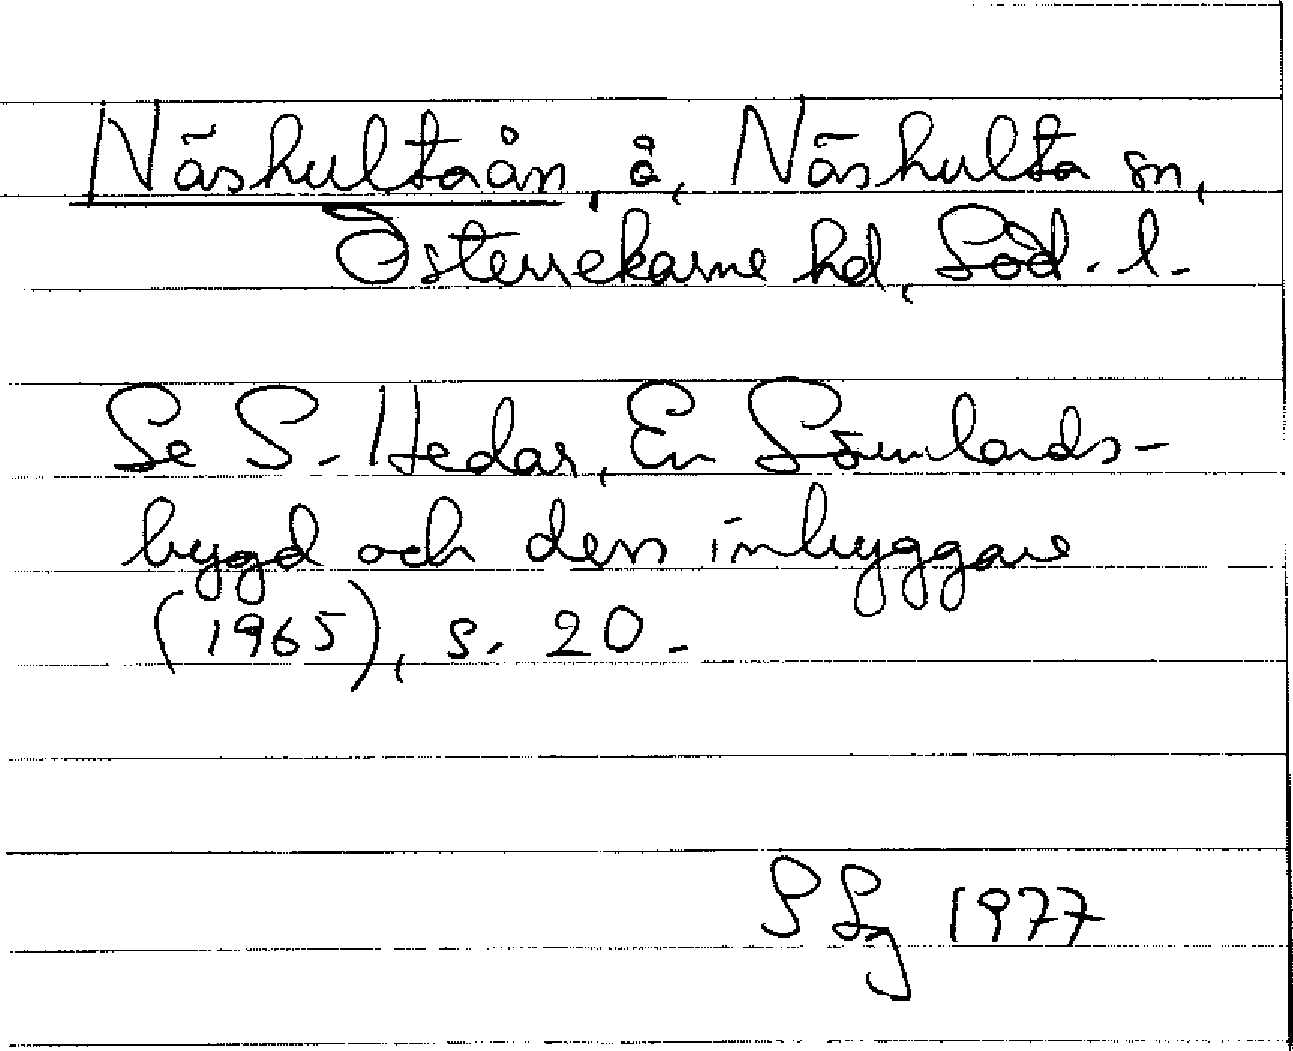 Näshultaån, å, Näshulta sn,
Österrekarne hd, Söd. l.
Se S. Hedar, En Sörmlands-
bygd och dess inbyggare
(1965), s. 20.
1977